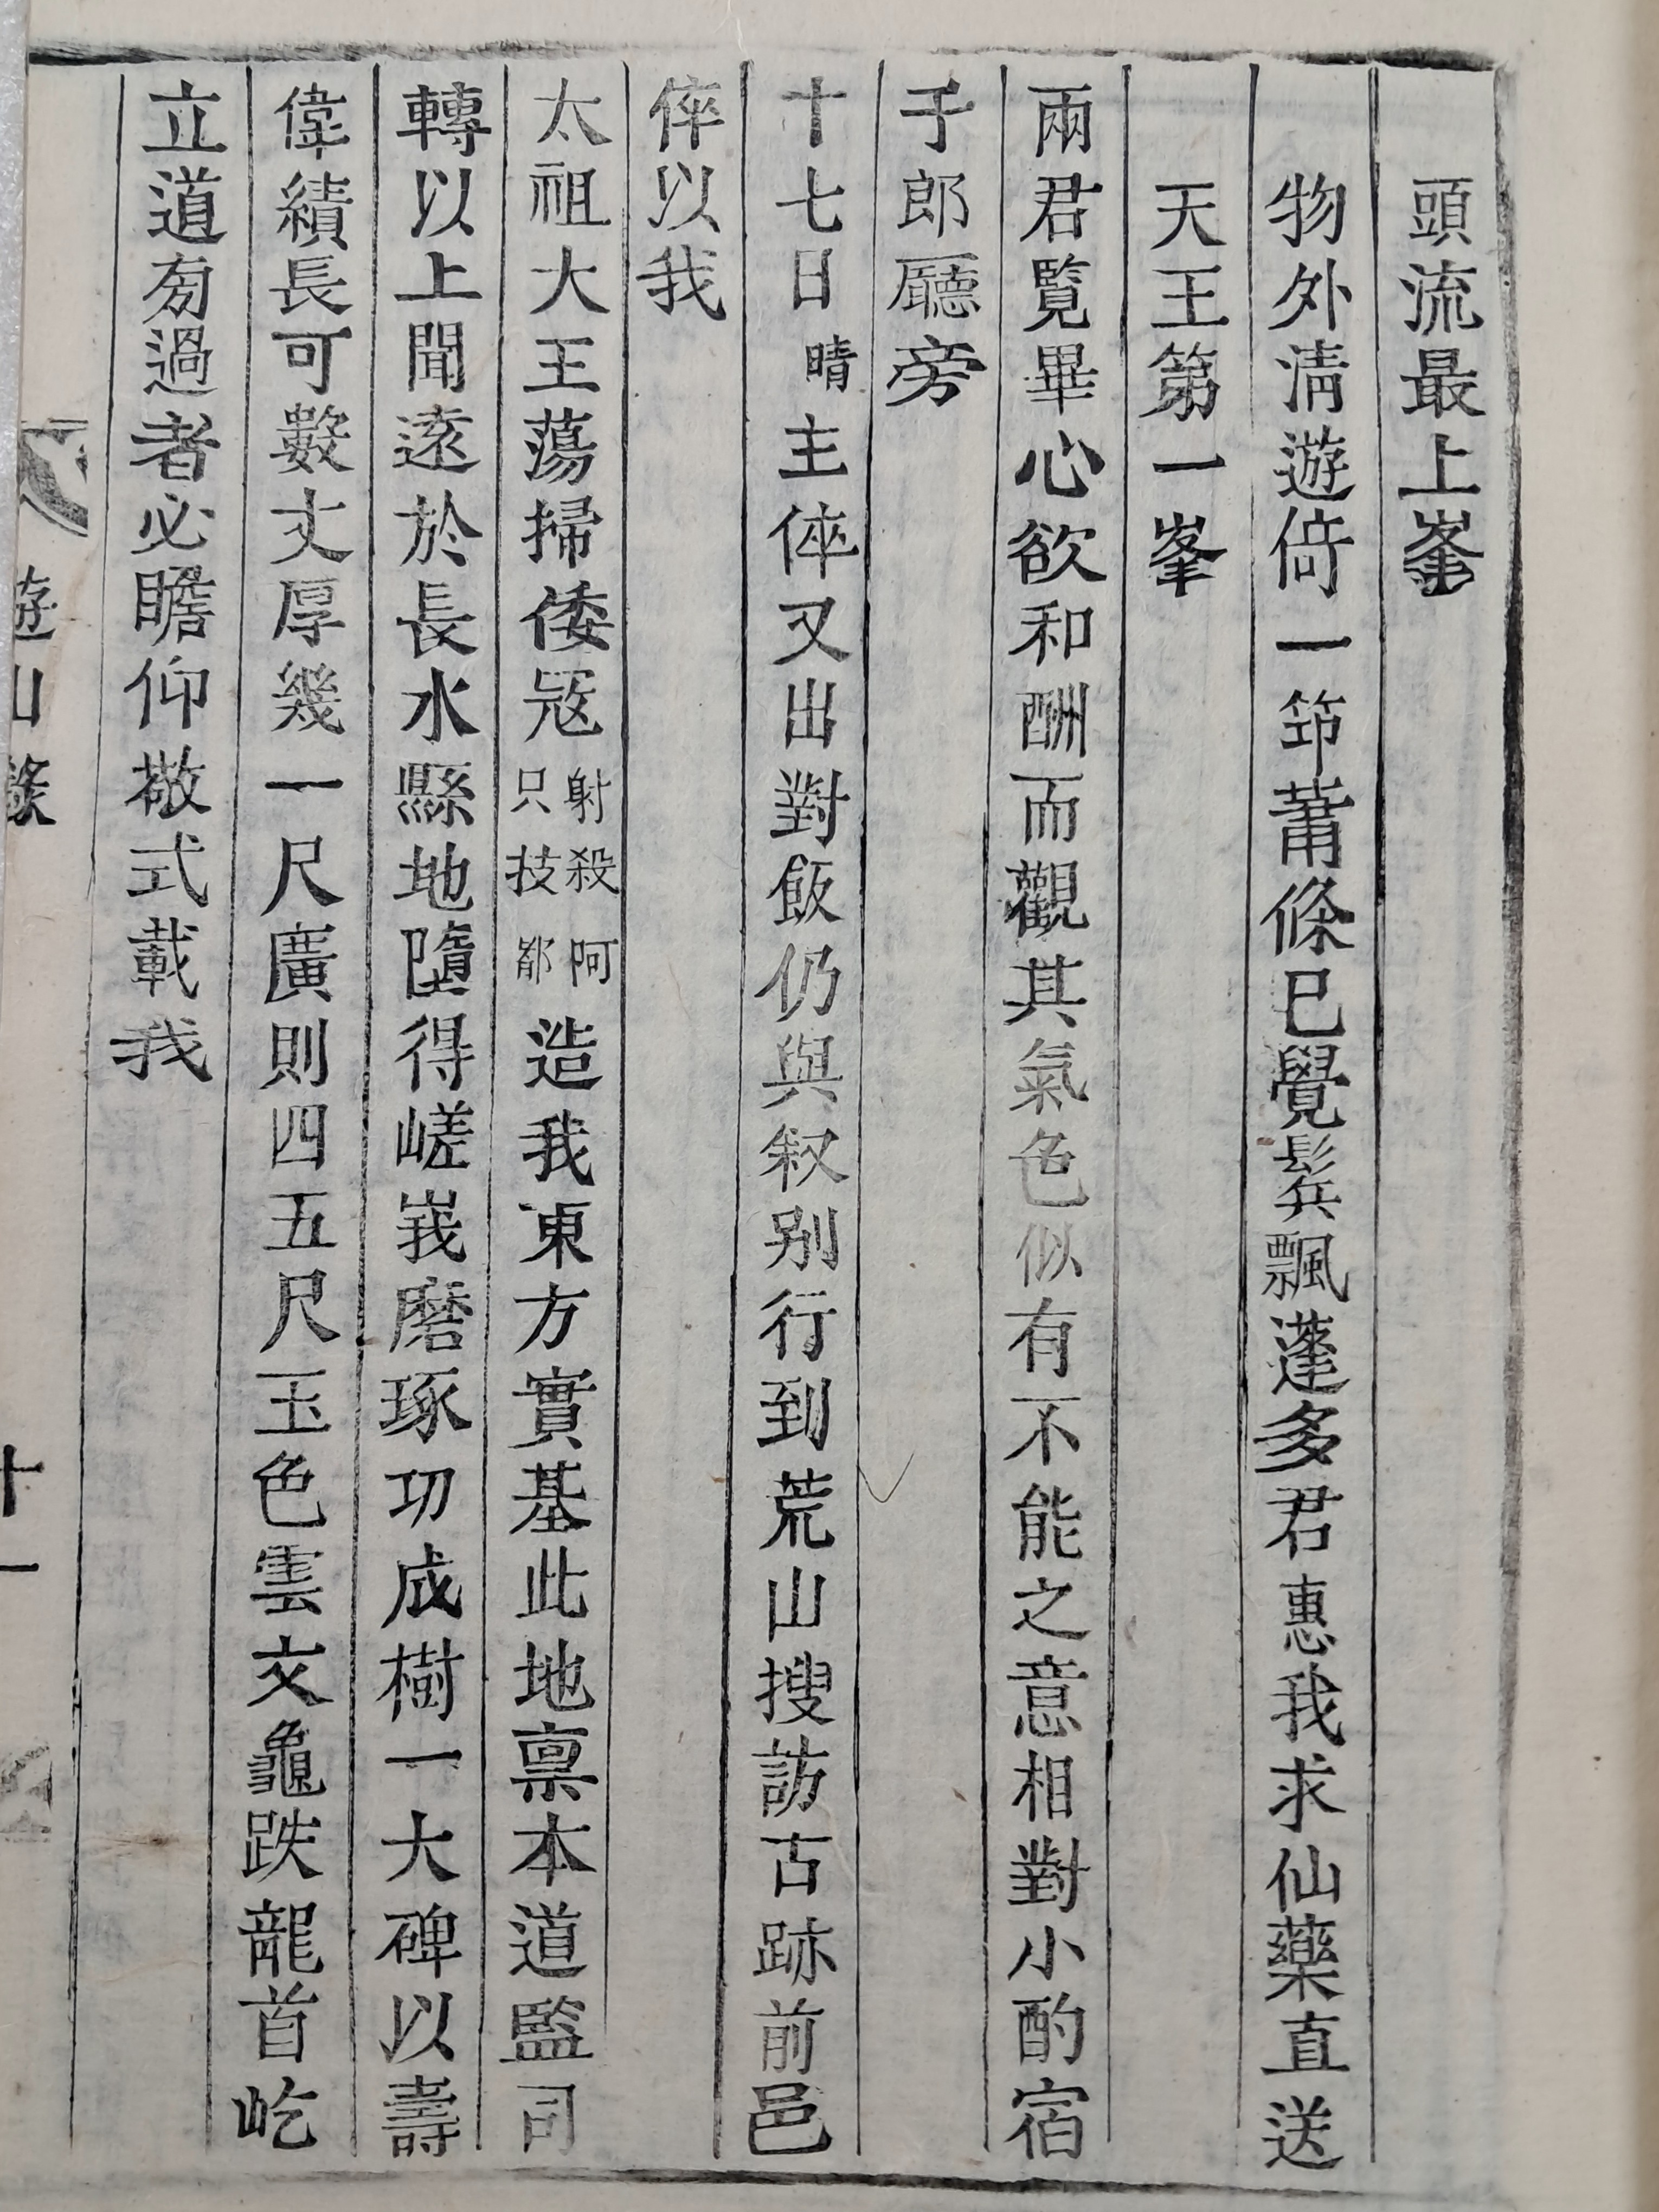 頭流最上峯
物外淸遊倚一笻蕭條已覺鬂飄蓬多君惠我求仙藥直送
天王第一峯
兩君覧畢心欲和酬而觀其氣色似有不能之意相對小酌宿
于郞廳旁
十七日晴主倅又出對飯仍與叙别行到荒山搜訪古跡前邑
倅以我
太祖大王蕩掃倭冦射殺阿只技都造我東方實基此地禀本道監司
轉以上聞遠於長水縣地墮得嵯峩磨琢功成樹一大碑以壽
偉績長可數丈厚幾一尺廣則四五尺玉色雲文龜趺龍首屹
立道旁過者必瞻仰敬式載我
遊山錄
十一